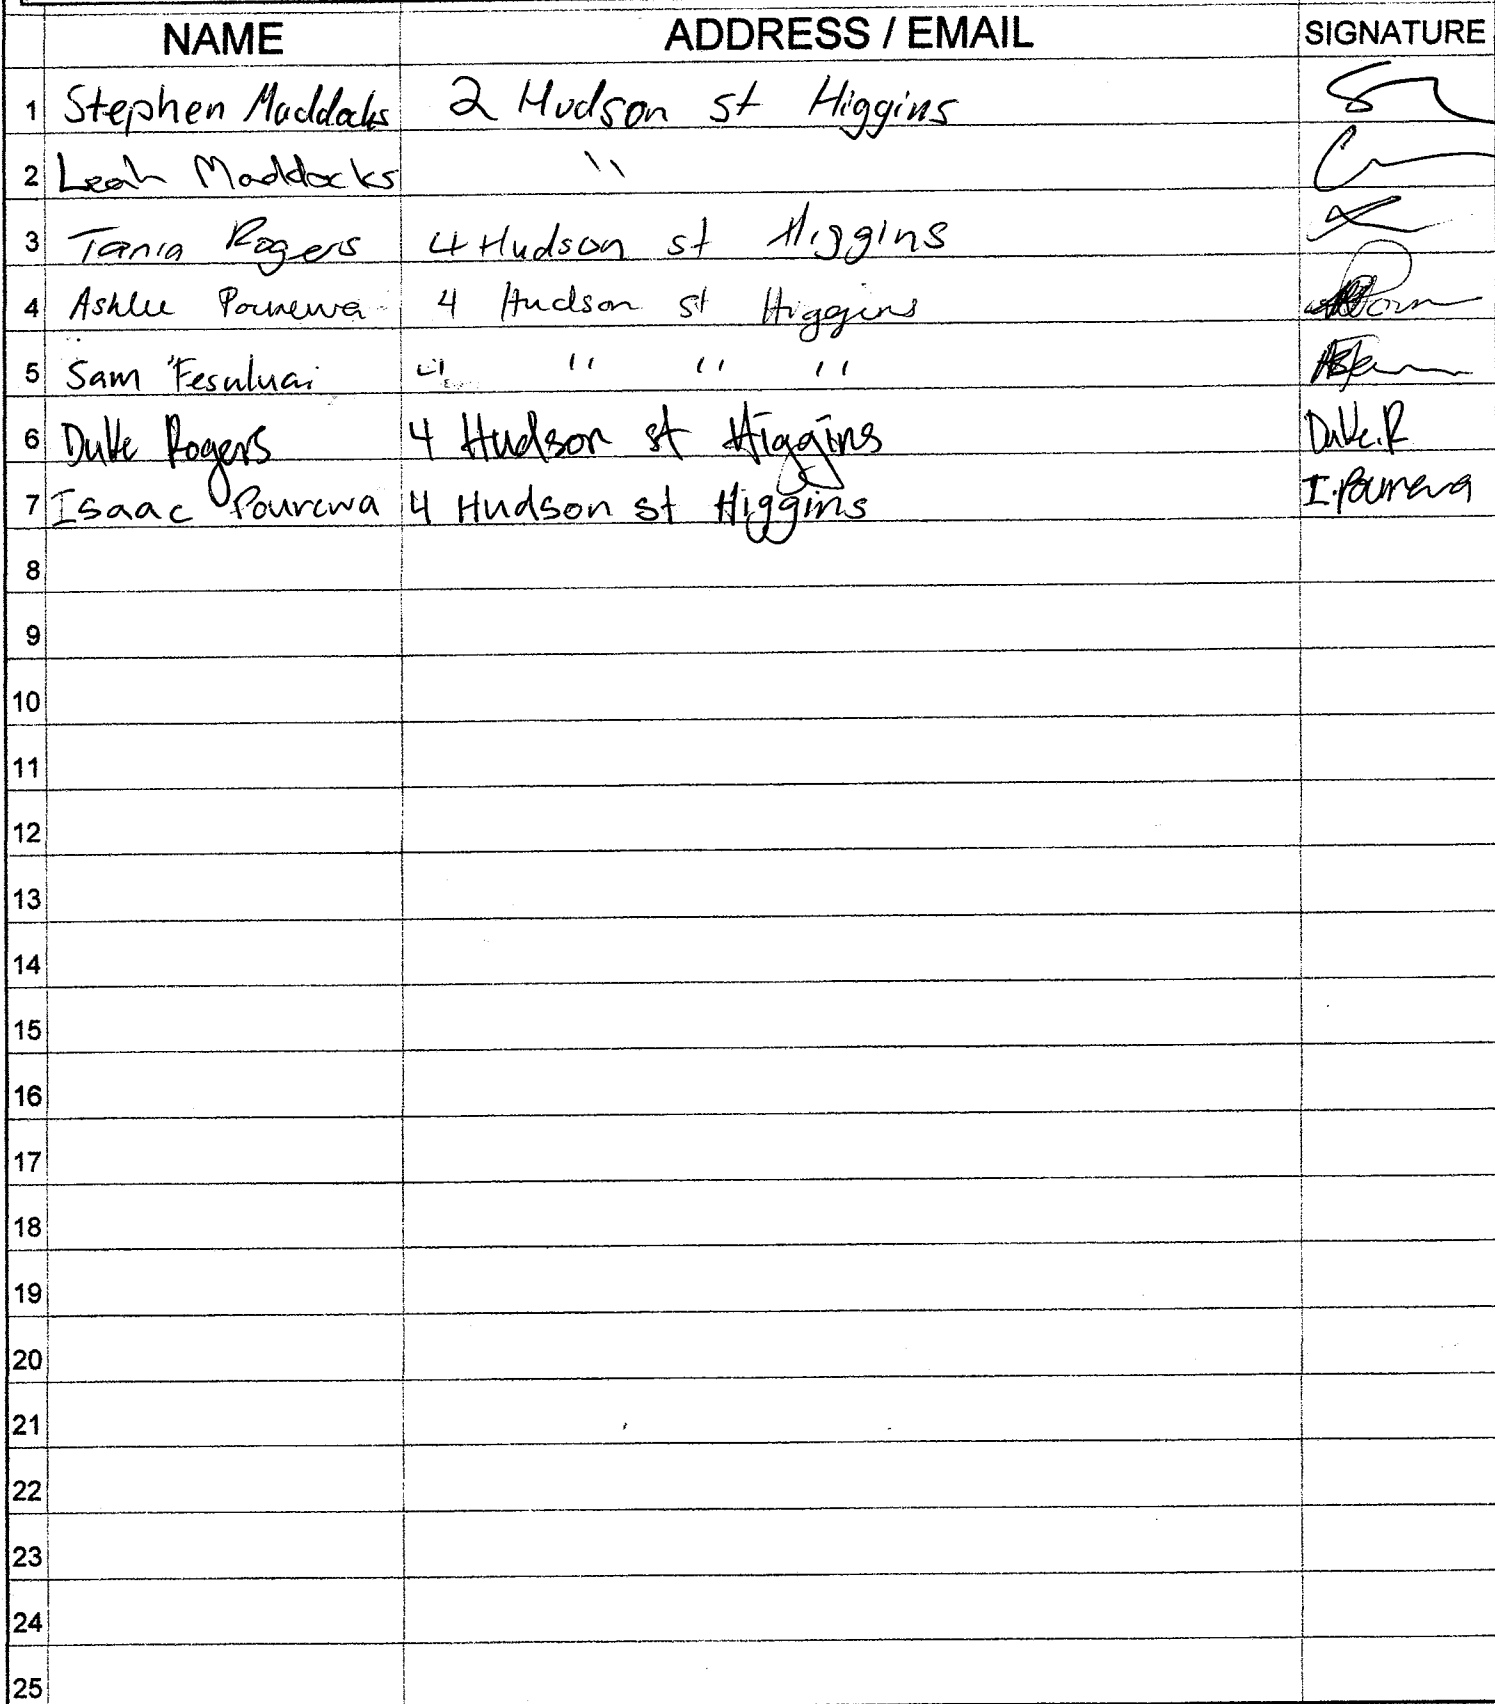 NAME ADDRESS / EMAIL SIGNATURE
1 Stephen Maddocks 2 Hudson st Higgins
2 Leah Maddocks "
3 Tania Rogers 4 Hudson st Higgins
4 Ashlee Pourewa 4 Hudson st Higgins
5 Sam Fesuluai " " " "
6 Duke Rogers 4 Hudson st Higgins Duke.R
7 Isaac Pourewa 4 Hudson st Higgins I.Pourewa
8
9
10
11
12
13
14
15
16
17
18
19
20
21
22
23
24
25